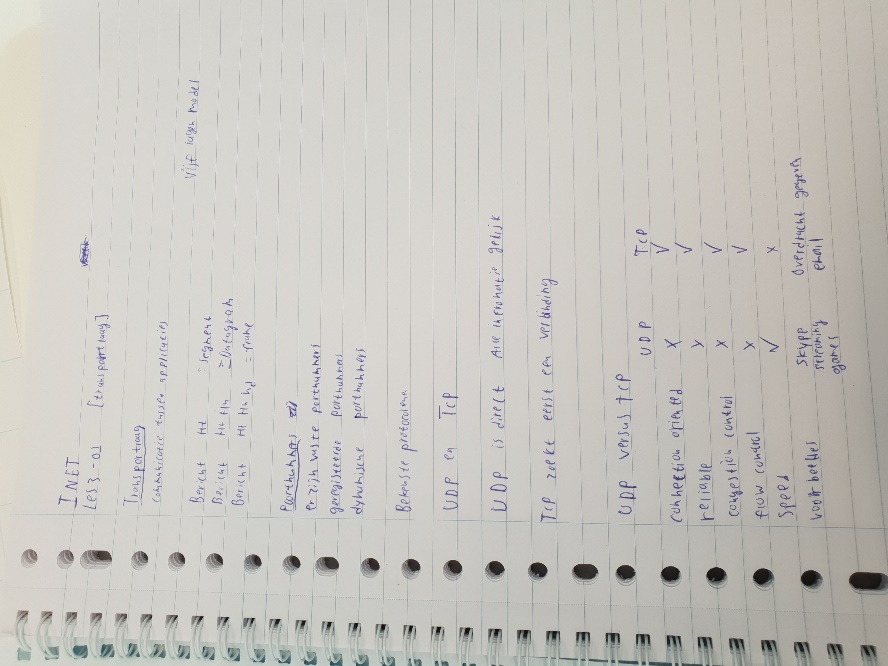 INET
Les 3-01 [transportlaag]
Transportlaag
communicatie tussen applicaties
Vijf lagen model
Bericht Ht = Segment
Bericht Ht Hn = Datagram
Bericht Ht Hn hd = frame
Poorthummers
er zijn vaste porthummers
geregisteerde porthummers
dynamische porthummers
Bekenste protocolen
UDP en TCP
UDP is direct gelijk
TCP zoekt eerst een verbinding
UDP versus TCP
UDP TCP
connection oriented x ✓
reliable x ✓
congestion control x ✓
flow control x ✓
speed ✓ x
voorbeelden skype overdracht gegevens
streaming email
games